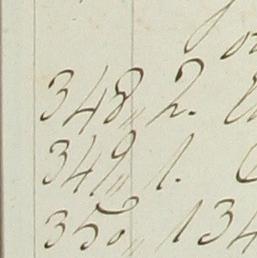 348 „ 2.
349 „ 1.
350 „ 134